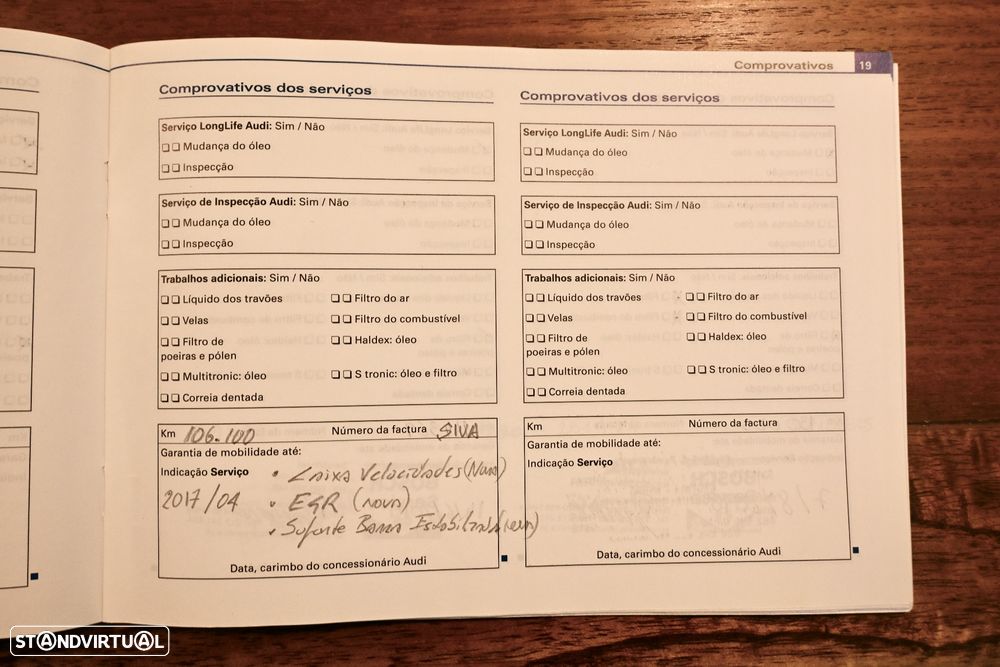 Comprovativos 19
Comprovativos dos serviços
Serviço LongLife Audi: Sim / Não
❑ ❑ Mudança do óleo
❑ ❑ Inspecção
Serviço de Inspecção Audi: Sim / Não
❑ ❑ Mudança do óleo
❑ ❑ Inspecção
Trabalhos adicionais: Sim / Não
❑ ❑ Líquido dos travões ❑ ❑ Filtro do ar
❑ ❑ Velas ❑ ❑ Filtro do combustível
❑ ❑ Filtro de ❑ ❑ Haldex: óleo
poeiras e pólen
❑ ❑ Multitronic: óleo ❑ ❑ S tronic: óleo e filtro
❑ ❑ Correia dentada
Km 106.100 Número da factura SIVA
Garantia de mobilidade até:
Indicação Serviço • Caixa Velocidades (Nova)
2017/04 • EGR (nova)
• Suporte Barra
Data, carimbo do concessionário Audi
Comprovativos dos serviços
Serviço LongLife Audi: Sim / Não
❑ ❑ Mudança do óleo
❑ ❑ Inspecção
Serviço de Inspecção Audi: Sim / Não
❑ ❑ Mudança do óleo
❑ ❑ Inspecção
Trabalhos adicionais: Sim / Não
❑ ❑ Líquido dos travões ❑ ❑ Filtro do ar
❑ ❑ Velas ❑ ❑ Filtro do combustível
❑ ❑ Filtro de ❑ ❑ Haldex: óleo
poeiras e pólen
❑ ❑ Multitronic: óleo ❑ ❑ S tronic: óleo e filtro
❑ ❑ Correia dentada
Km Número da factura
Garantia de mobilidade até:
Indicação Serviço
Data, carimbo do concessionário Audi
STANDVIRTUAL